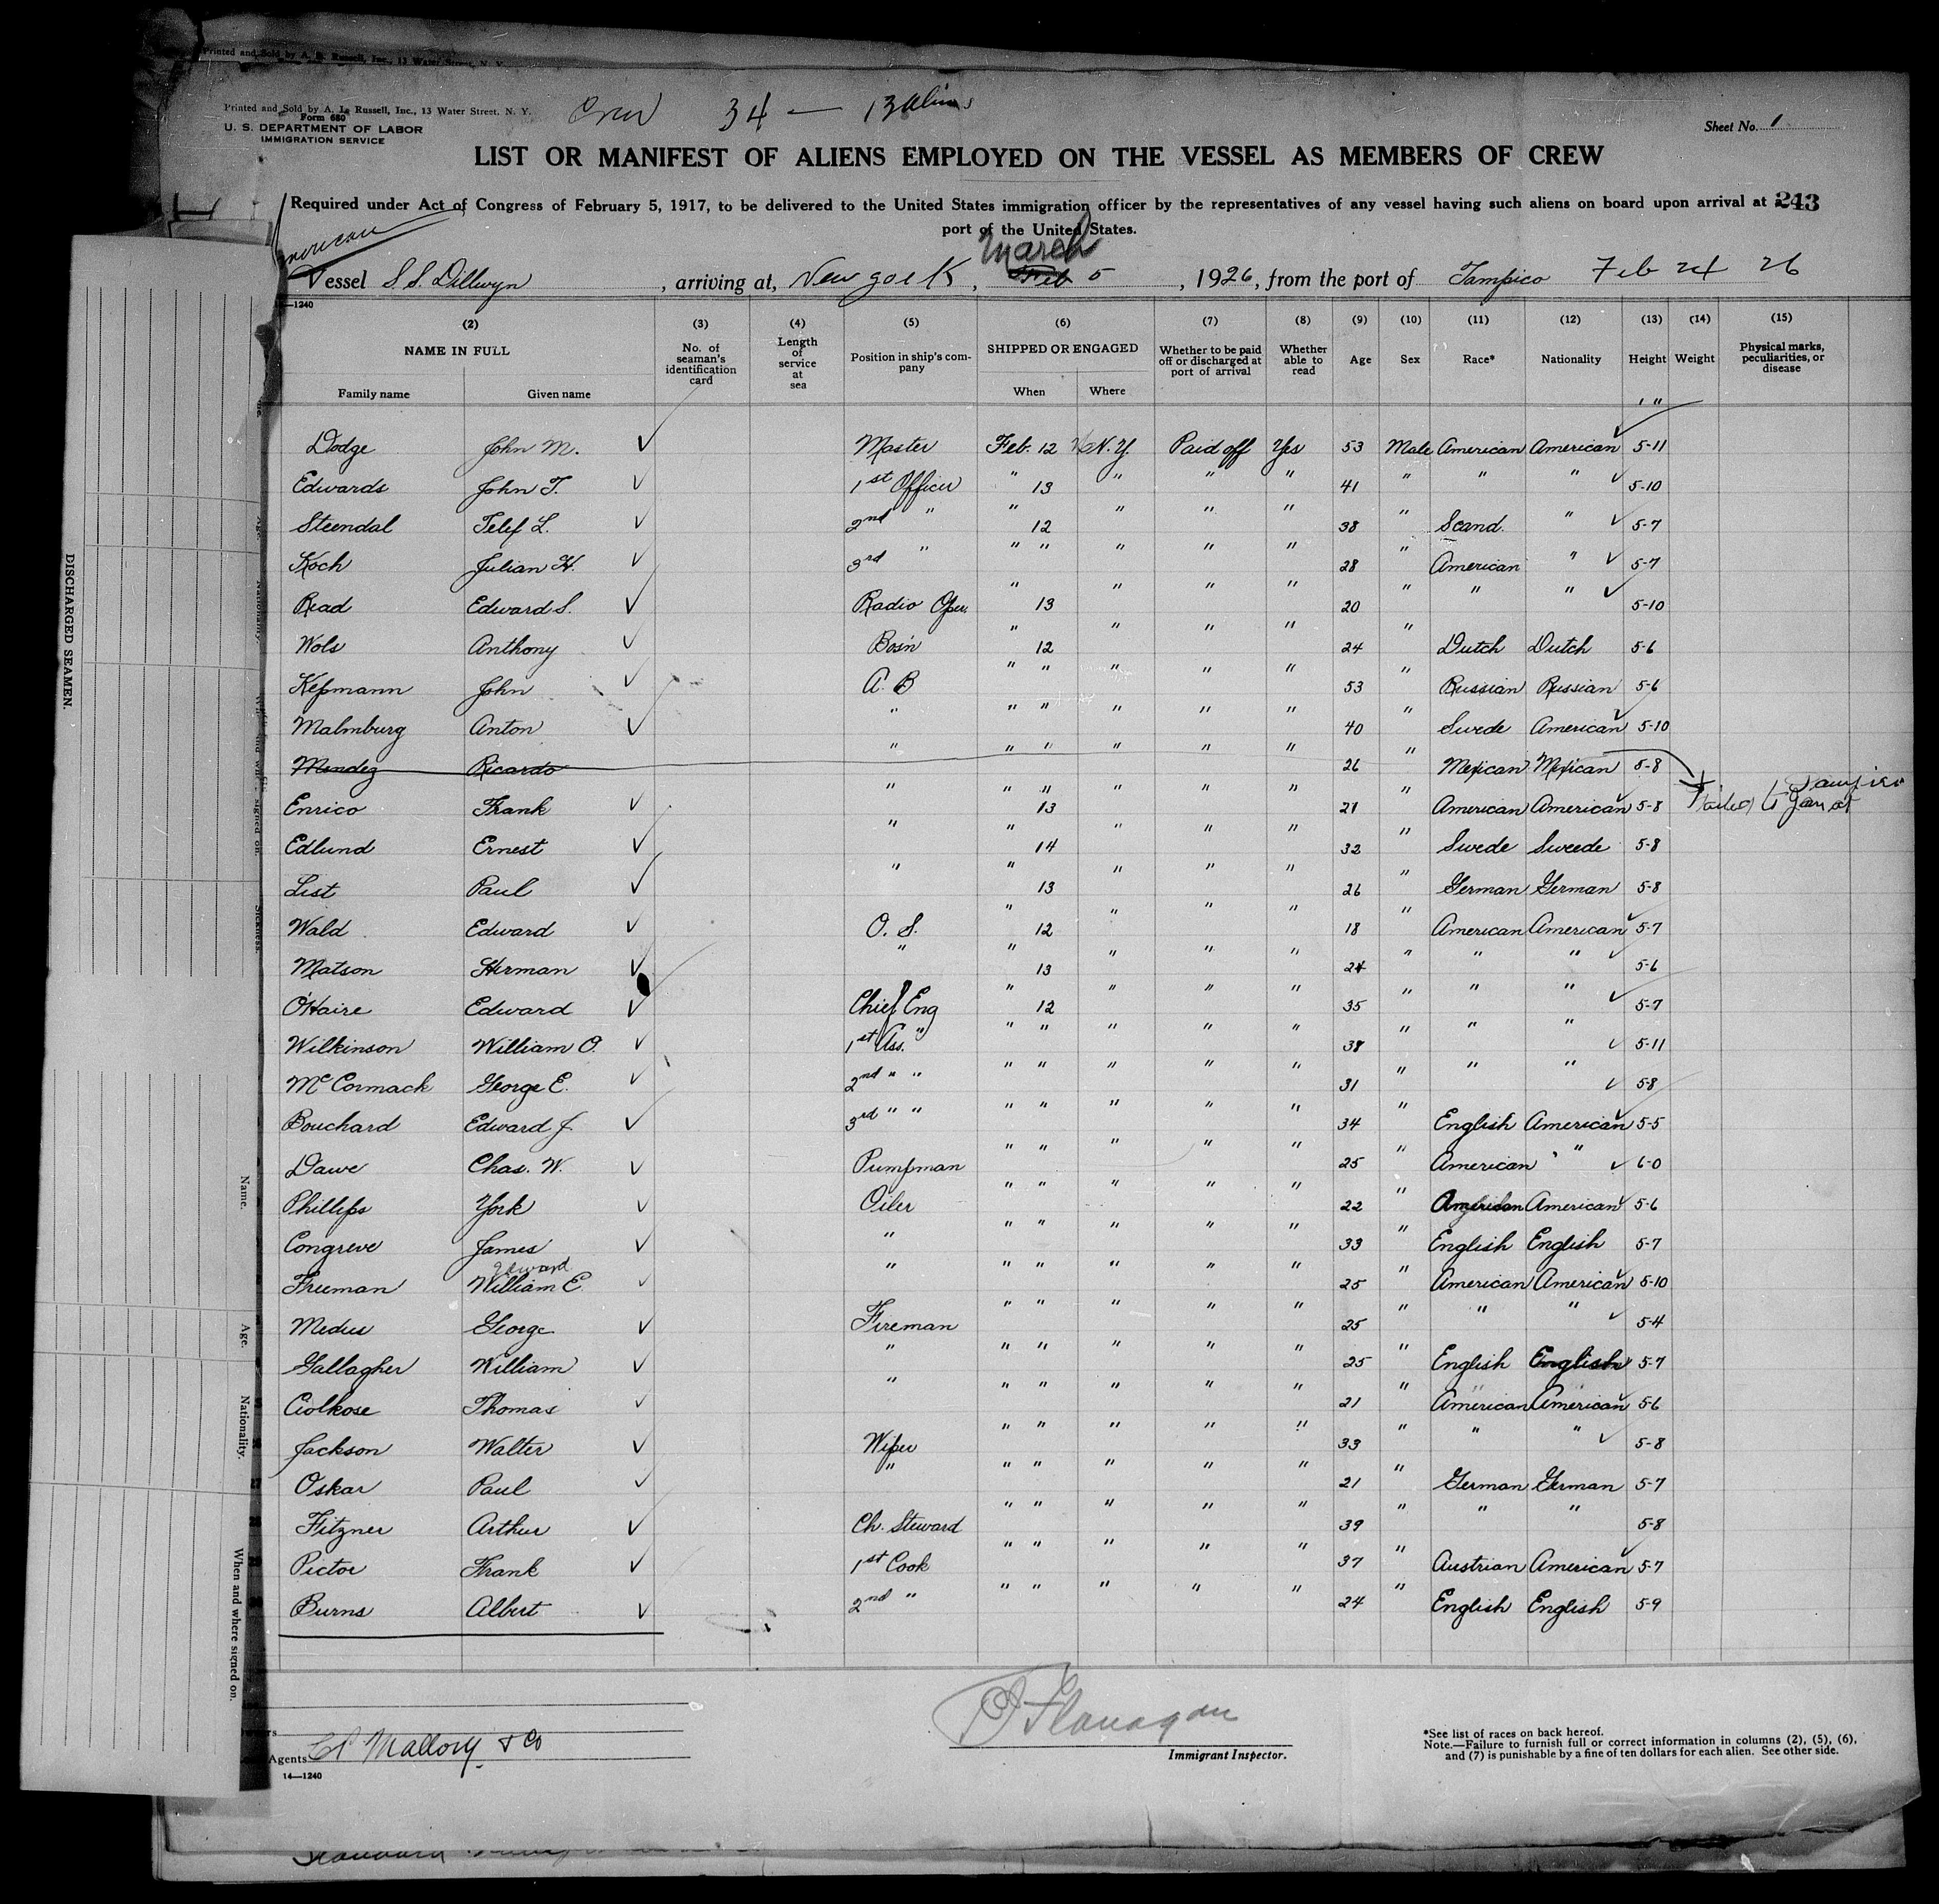 Printed and Sold by A. L. Russell, Inc., 13 Water Street, N. Y.
Printed and Sold by A. L. Russell, Inc., 13 Water Street, N. Y.
Crew 34 — 13 Aliens
Form 680
U. S. DEPARTMENT OF LABOR
IMMIGRATION SERVICE
Sheet No. 1
LIST OR MANIFEST OF ALIENS EMPLOYED ON THE VESSEL AS MEMBERS OF CREW
Required under Act of Congress of February 5, 1917, to be delivered to the United States immigration officer by the representatives of any vessel having such aliens on board upon arrival at a
243
port of the United States.
American
March
Vessel S.S. Dillwyn, arriving at, New York, Feb 5, 1926, from the port of Tampico Feb 24 26
14—1240
(2) (3) (4) (5) (6) (7) (8) (9) (10) (11) (12) (13) (14) (15)
NAME IN FULL No. of seaman's identification card Length of service at sea Position in ship's company SHIPPED OR ENGAGED Whether to be paid off or discharged at port of arrival Whether able to read Age Sex Race* Nationality Height Weight Physical marks, peculiarities, or disease
Family name Given name When Where
' "
Dodge John M. ✓ Master Feb. 12 N.Y. Paid off Yes 53 Male American American ✓ 5-11
Edwards John T. ✓ 1st Officer " 13 " " " 41 " " " ✓ 5-10
Steendal Telef L. ✓ 2nd " " 12 " " " 38 " Scand. " ✓ 5-7
Koch Julian H. ✓ 3rd " " " " " " 28 " American " ✓ 5-7
Read Edward S. ✓ Radio Oper. " 13 " " " 20 " " " ✓ 5-10
Wols Anthony ✓ Bos'n " 12 " " " 24 " Dutch Dutch 5-6
Keßmann John ✓ A. B " " " " " 53 " Russian Russian 5-6
Malmburg Anton ✓ " " " " " " 40 " Swede American ✓ 5-10
Mendez Ricardo " " " " " " 26 " Mexican Mexican 5-8
Failed to Join at Tampico
Enrico Frank ✓ " " 13 " " " 21 " American American ✓ 5-8
Edlund Ernest ✓ " " 14 " " " 32 " Swede Sweede 5-8
List Paul ✓ " " 13 " " " 26 " German German 5-8
Wald Edward ✓ O. S. " 12 " " " 18 " American American ✓ 5-7
Matson Herman ✓ " " 13 " " " 24 " " " ✓ 5-6
O'Haire Edward ✓ Chief Eng " 12 " " " 35 " " " ✓ 5-7
Wilkinson William O. ✓ 1st Ass. " " " " " " 38 " " " ✓ 5-11
McCormack George E. ✓ 2nd " " " " " " " 31 " " " ✓ 5-8
Bouchard Edward J. ✓ 3rd " " " " " " " 34 " English American ✓ 5-5
Dawe Chas. W. ✓ Pumpman " " " " " 25 " American " ✓ 6-0
Phillips York ✓ Oiler " " " " " 22 " American American ✓ 5-6
Congreve James ✓ " " " " " " 33 " English English 5-7
Edward
Freeman William E. ✓ " " " " " " 25 " American American ✓ 5-10
Medus George ✓ Fireman " " " " " 25 " " " ✓ 5-4
Gallagher William ✓ " " " " " " 25 " English English 5-7
Thomas ✓ " " " " " " 21 " American American ✓ 5-6
Jackson Walter ✓ Wiper " " " " " 33 " " " ✓ 5-8
Oskar Paul ✓ " " " " " " 21 " German German 5-7
Fitzner Arthur ✓ Ch. Steward " " " " " 39 " " " 5-8
Pictor Frank ✓ 1st Cook " " " " " 37 " Austrian American ✓ 5-7
Burns Albert ✓ 2nd " " " " " " 24 " English English 5-9
Flanagan
Immigrant Inspector.
Agents Mallory & Co
14—1240
*See list of races on back hereof.
Note.—Failure to furnish full or correct information in columns (2), (5), (6),
and (7) is punishable by a fine of ten dollars for each alien. See other side.
DISCHARGED SEAMEN.
Name.
Age.
Nationality.
When and where signed on.
Sickness.